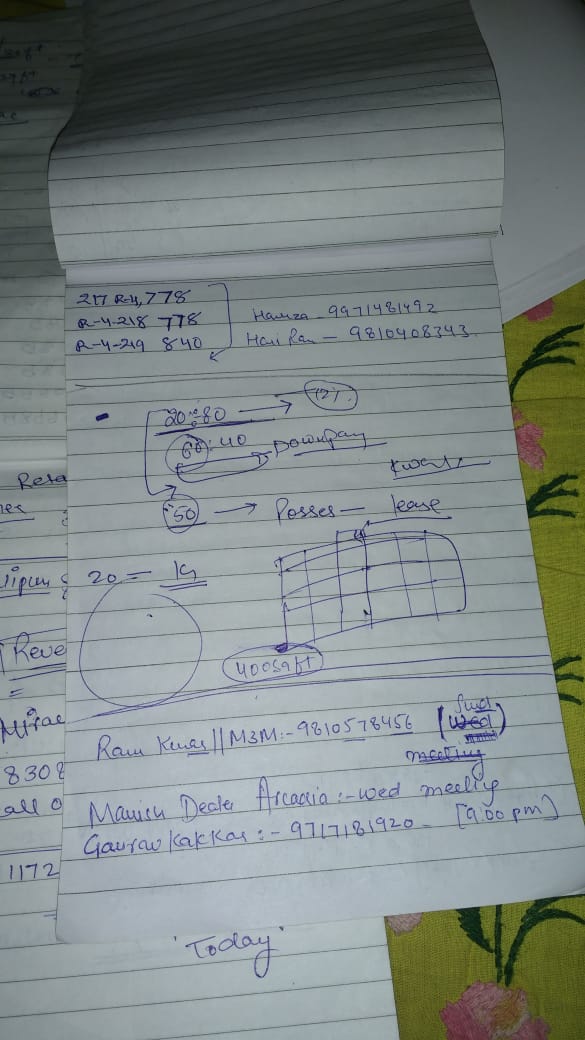 217 R-4, 778
R-4-218 778
R-4-219 840
Hamza - 9971481492
Hari Ran - 9810408343
20:80 → (12%)
60:40 → Downpay
50 → Posses - lease
20 =
400 sqft
Ram || M3M:- 9810578456 (wed)
meeting
Manish Dealer Arcadia :- wed meeting
Gaurav Kakkar :- 9717181920 - [9:00 pm]
Reve
8308
all o
1172
"Today"